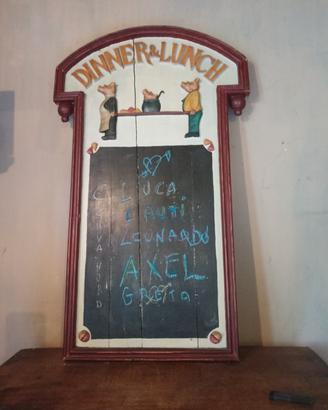 DINNER & LUNCH
LUCA
CAUTI
LEONARDO
AXEL
GRETA